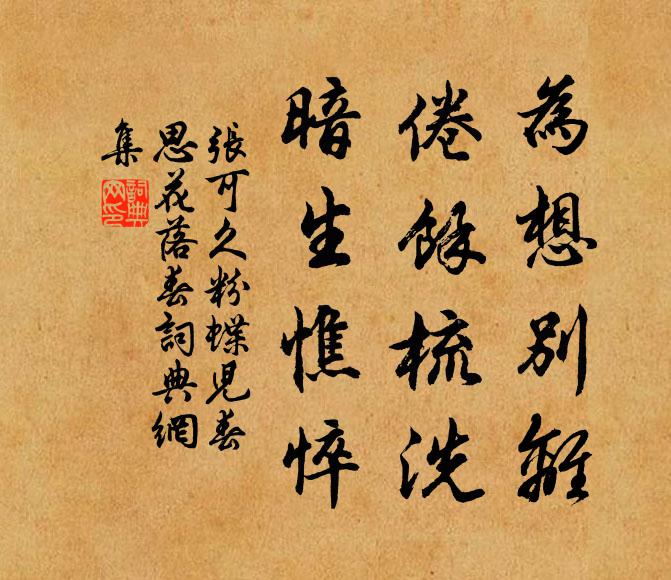 為想別離
倦餘梳洗
暗生憔悴
張可久粉蝶兒春
思花落春詞典網
集
詞典
网印